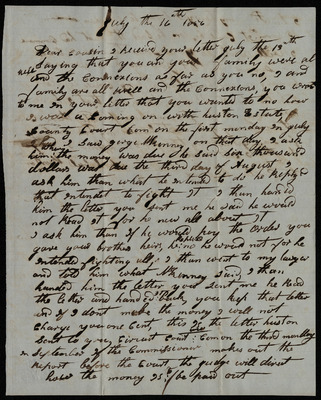 July the 16th
Dear Cousin I receivd your letter July the 15th
Saying that you and your family were all
well
and the Connexions as far as you no, I and
family are all well and the Connexons you wrote
to me in your letter that you wanted to no how
I was a Coming on with huston Estate,
County Court Com on the first monday in July
I Said george McKinney on that day, I ask
him the money was due he Said Six thousand
dollars was due the third day of August, I
ask him than what he intend to do he Replyd
that intended to fight it I than handed
him the letter you sent me he said he would
not Read it for he new all about it
I ask him than if he would pay the orders you
gave your brothers heirs, he no he would not for he
Replied
intended fighting all, I than went to my lawyer
and told him what McKinney said, I than
handed him the letter you sent me he Read
the letter and handed back, you kep that letter
and if I dont make the money I will not
Charge you one Cent, this is the letter huston
Sent to you, Circuit Court Com on the third monday
in September if the Commissioner makes out the
Report before the Court the Judge will direct
how the money is to be paid out